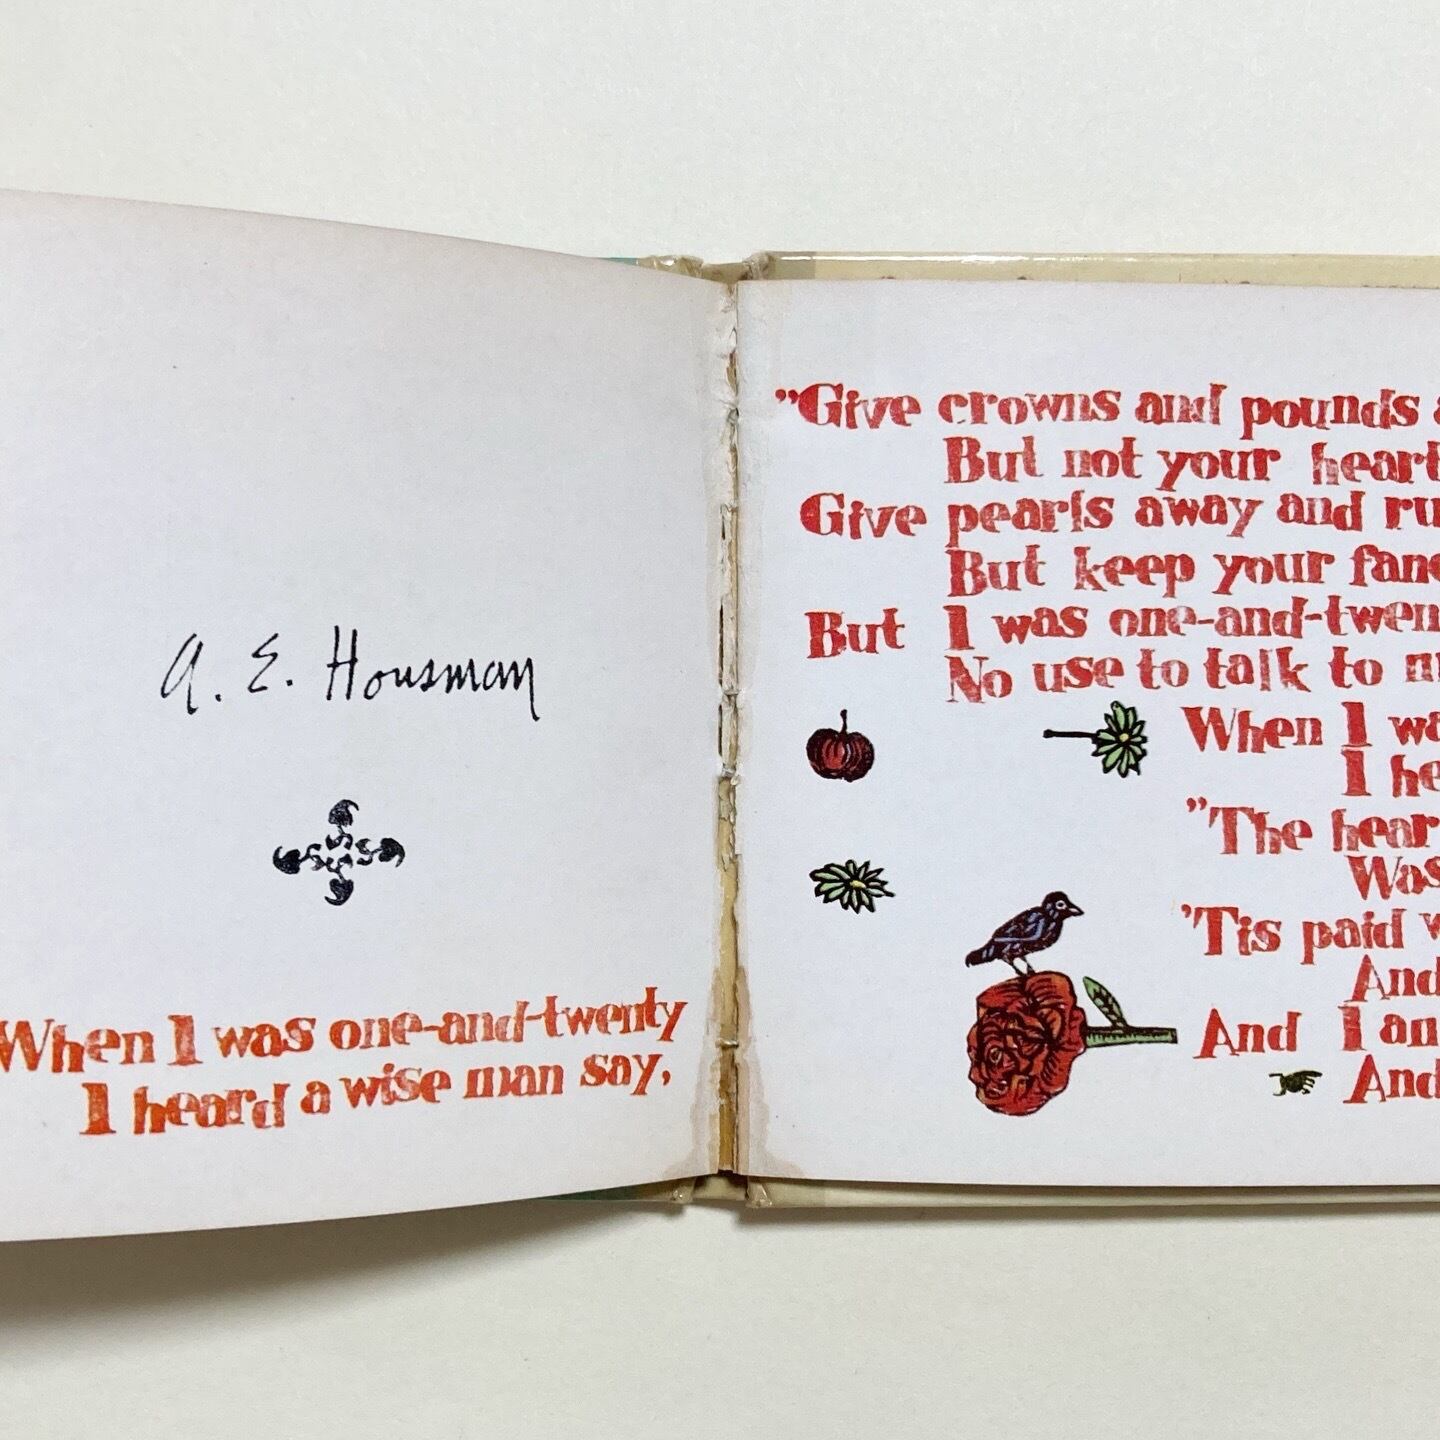 A. E. Housman
When I was one-and-twenty
I heard a wise man say,
"Give crowns and pounds
But not your heart
Give pearls away and
But keep your
But I was one-and-
No use to talk to
When I
I
"The
'Tis paid
And
And I
And